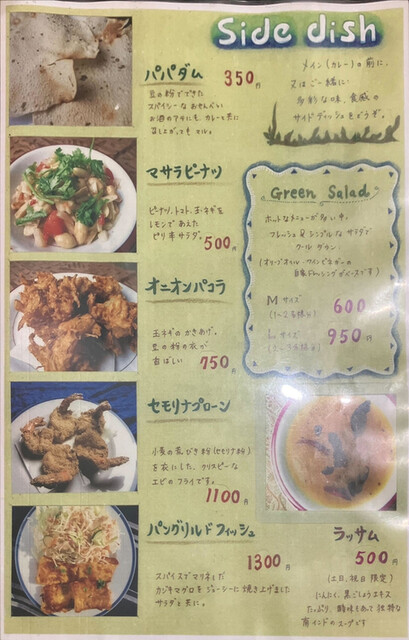 Side dish
メイン(カレー)の前に、
又はご一緒に
多彩な味、食感の
サイドディッシュをどうぞ。
パパダム 350円
豆の粉でできた
スパイシーなおせんべい
お酒のアテにも、カレーと共に
召し上がっても マル。
マサラピーナツ
ピーナツ、トマト、玉ネギを
レモンであえた
ピリ辛サラダ。
500円
オニオンパコラ
玉ネギのかきあげ。
豆の粉の衣が
香ばしい
750円
セモリナプローン
小麦の荒びき粉(セモリナ粉)
を衣にした、クリスピーな
エビのフライです。
1100円
パングリルドフィッシュ
1300円
スパイスでマリネした
カジキマグロをジューシーに焼き上げました
サラダと共に。
Green Salad
ホットなメニューが多い中。
フレッシュ&シンプルなサラダで
クールダウン
(オリーブオイル・ワインビネガーの
自家ドレッシングがベースです)
Mサイズ 600円
Lサイズ 950円
ラッサム
500円
(土日、祝日限定)
にんにく、黒こしょうエキス
たっぷり、酸味もあって独特な
南インドのスープです